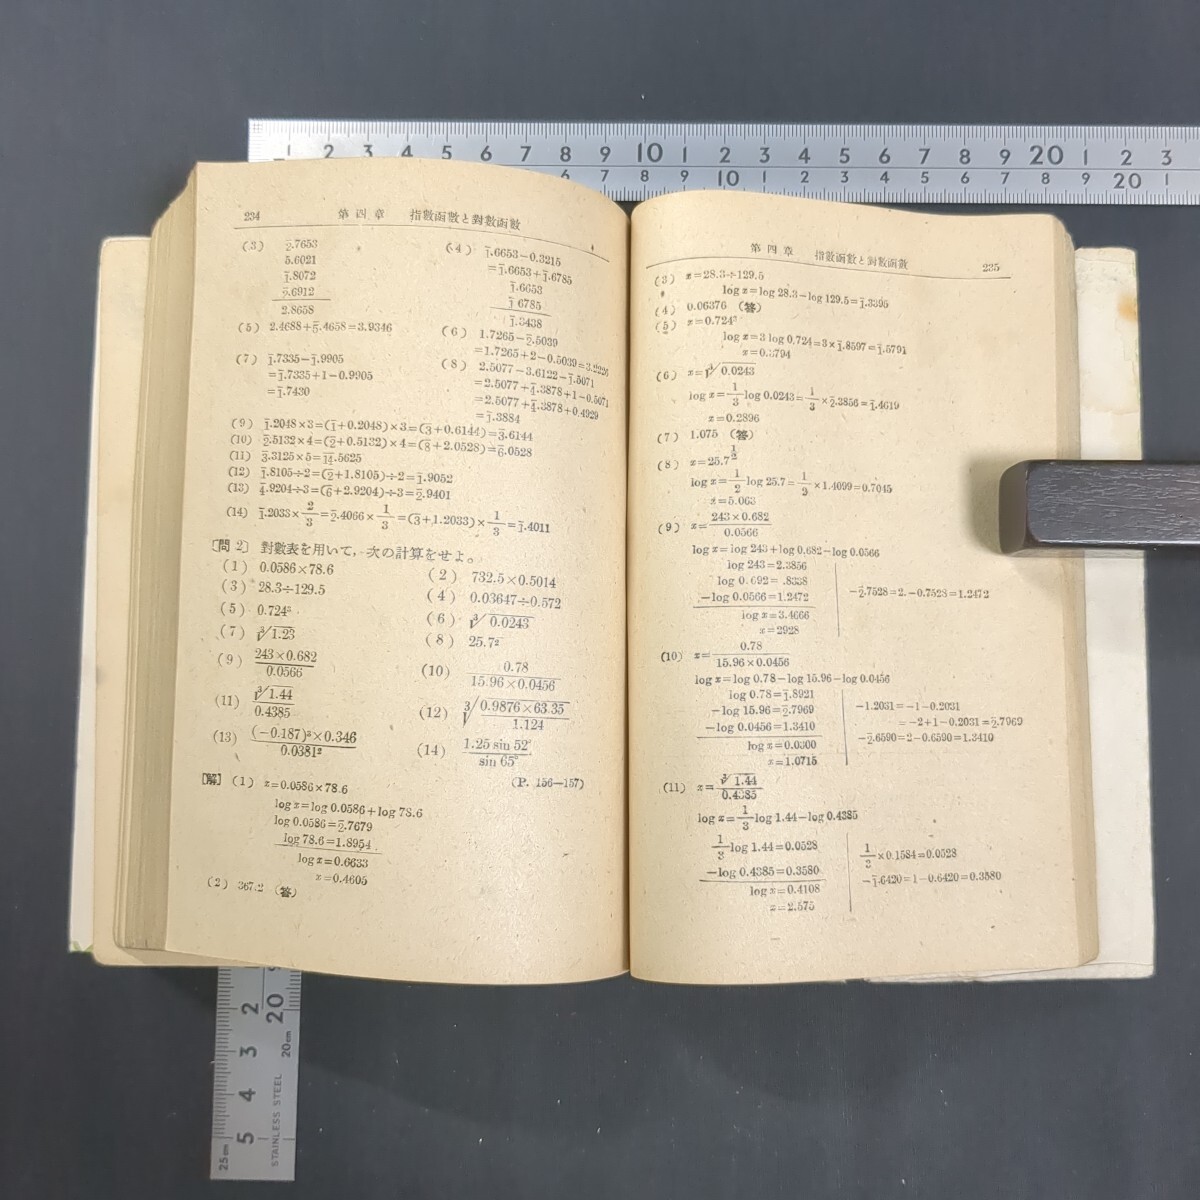 1 2 3 4 5 6 7 8 9 10 1 2 3 4 5 6 7 8 9 20 1 2 3
6 7 8 9 10 1 2 3 4 5 6 7 8 9 20 1
234 第四章 指數函數と對數函數
(3) 2̅.7653
5.6021
1̅.8072
2.8658
(4) 1̅.6653−0.3215
=1̅.6653+1̅.6785
1̅.6653
1̅.6785
1̅.3438
(5) 2.4688+5̅.4658=3.9346
(6) 1.7265−2̅.5039
=1.7265+2−0.5039=3.2226
(7) 1̅.7335−1̅.9905
=1̅.7335+1−0.9905
=1̅.7430
(8) 2.5077−3.6122−1̅.5071
=2.5077+4̅.3878+1−0.5071
=2.5077+4̅.3878+0.4929
=1̅.3884
(9) 1̅.2048×3=(1̅+0.2048)×3=(3̅+0.6144)=3̅.6144
(10) 2̅.5132×4=(2̅+0.5132)×4=(8̅+2.0528)=6̅.0528
(11) 3̅.3125×5=1̅4̅.5625
(12) 1̅.8105÷2=(2̅+1.8105)÷2=1̅.9052
(13) 4̅.9204÷3=(6̅+2.9204)÷3=2̅.9401
(14) 1̅.2033×2/3=2̅.4066×1/3=(3̅+1.2033)×1/3=1̅.4011
[問2] 對數表を用いて,次の計算をせよ。
(1) 0.0586×78.6
(2) 732.5×0.5014
(3) 28.3÷129.5
(4) 0.03647÷0.572
(5) 0.724³
(6) ∛0.0243
(7) ∛1.23
(8) 25.7½
(9) 243×0.682/0.0566
(10) 0.78/15.96×0.0456
(11) ∛1.44/0.4385
(12) ∛(0.9876×63.35/1.124)
(13) (−0.187)³×0.346/0.0381²
(14) 1.25 sin 52°/sin 65°
(P. 156—157)
[解] (1) x=0.0586×78.6
log x=log 0.0586+log 78.6
log 0.0586=2̅.7679
log 78.6=1.8954
log x=0.6633
x=0.4605
(2) 367.2 (答)
第四章 指數函數と對數函數 235
(3) x=28.3÷129.5
log x=log 28.3−log 129.5=1̅.3395
(4) 0.06376 (答)
(5) x=0.724³
log x=3 log 0.724=3×1̅.8597=1̅.5791
x=0.3794
(6) x=∛0.0243
log x=1/3 log 0.0243=1/3×2̅.3856=1̅.4619
x=0.2896
(7) 1.075 (答)
(8) x=25.7½
log x=1/2 log 25.7=1/2×1.4099=0.7045
x=5.063
(9) x=243×0.682/0.0566
log x=log 243+log 0.682−log 0.0566
log 243=2.3856
log 0.692=.8338
−log 0.0566=1.2472
log x=3.4666
x=2928
−2̅.7528=2.−0.7528=1.2472
(10) x=0.78/15.96×0.0456
log x=log 0.78−log 15.96−log 0.0456
log 0.78=1̅.8921
−log 15.96=2̅.7969
−log 0.0456=1.3410
log x=0.0300
x=1.0715
−1.2031=−1−0.2031
=−2+1−0.2031=2̅.7969
−2̅.6590=2−0.6590=1.3410
(11) x=∛1.44/0.4385
log x=1/3 log 1.44−log 0.4385
1/3 log 1.44=0.0528
−log 0.4385=0.3580
log x=0.4108
x=2.575
1/3×0.1584=0.0528
−1̅.6420=1−0.6420=0.3580
2 3 4 5
20
20cm
25cm
STAINLESS STEEL